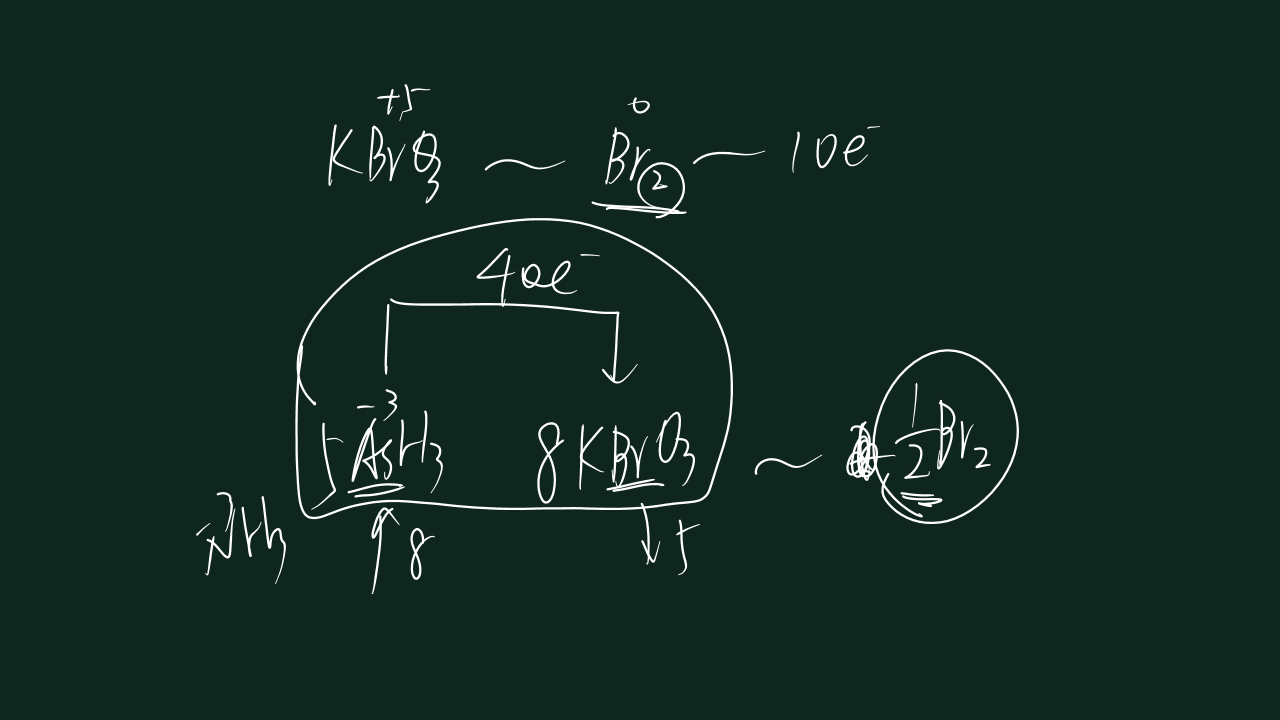 +5 0
KBrO3 ~ Br2 ~ 10e-
40e-
-3
5AsH3 8KBrO3 ~ 1/2 Br2
NH3 ↑8 ↓5